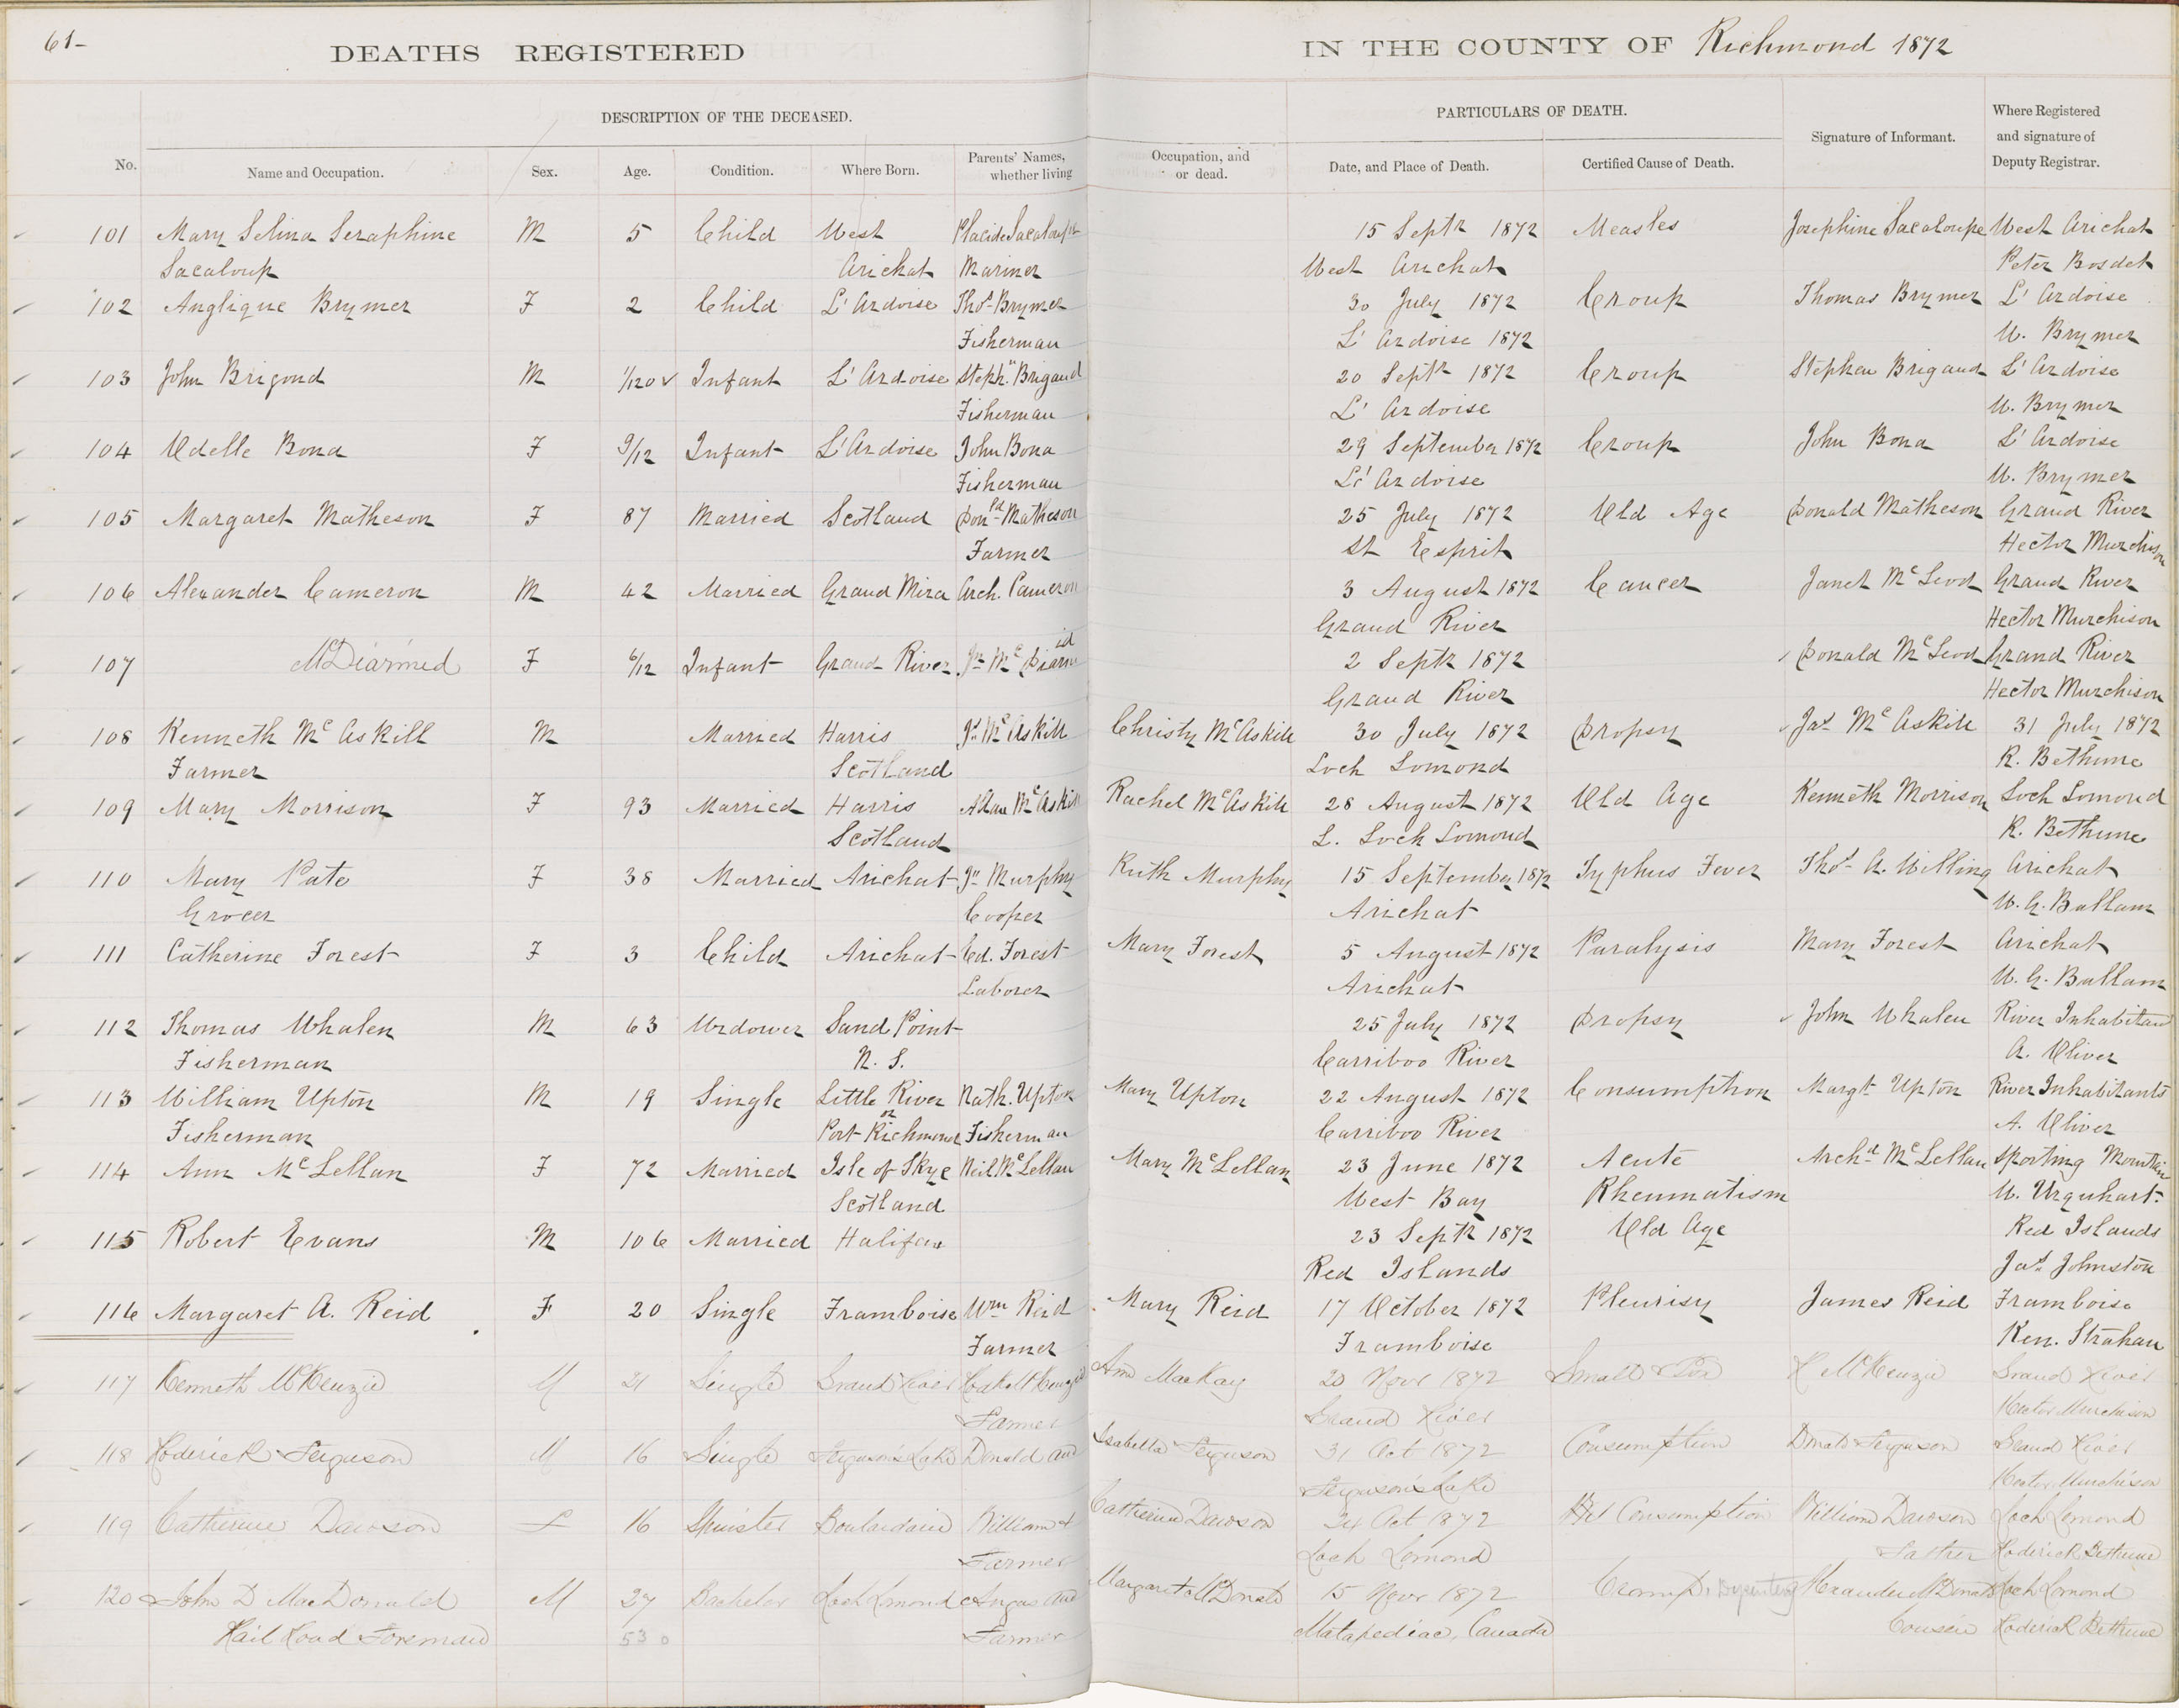 61-
DEATHS REGISTERED IN THE COUNTY OF Richmond 1872
DESCRIPTION OF THE DECEASED. PARTICULARS OF DEATH.
No. Name and Occupation. Sex. Age. Condition. Where Born. Parents' Names, whether living Occupation, and or dead. Date, and Place of Death. Certified Cause of Death. Signature of Informant. Where Registered and signature of Deputy Registrar.
101 Mary Selina Seraphine M 5 Child West Placide Sacaloup 15 Septr 1872 Measles Josephine Sacaloupe West Arichat
Sacaloup Arichat Mariner West Arichat Peter Bosdet
102 Anglique Brymer F 2 Child L'Ardoise Thos. Brymer 30 July 1872 Croup Thomas Brymer L'Ardoise
Fisherman L'Ardoise 1872 W. Brymer
103 John Brigond M 1/120 Infant L'Ardoise Steph.n Brigaud 20 Septr 1872 Croup Stephen Brigaud L'Ardoise
Fisherman L'Ardoise W. Brymer
104 Odelle Bona F 9/12 Infant L'Ardoise John Bona 29 September 1872 Croup John Bona L'Ardoise
Fisherman L'Ardoise W. Brymer
105 Margaret Matheson F 87 Married Scotland Donld Matheson 25 July 1872 Old Age Donald Matheson Grand River
Farmer St Esprit Hector Murchison
106 Alexander Cameron M 42 Married Grand Mira Arch. Cameron 3 August 1872 Cancer Janet McLeod Grand River
Grand River Hector Murchison
107 McDiarmed F 6/12 Infant Grand River Jn McDiarmid 2 Septr 1872 Donald McLeod Grand River
Grand River Hector Murchison
108 Kenneth McAskill M Married Harris Jn McAskill Christy McAskill 30 July 1872 Dropsy Jas McAskill 31 July 1872
Farmer Scotland Loch Lomond R. Bethune
109 Mary Morrison F 93 Married Harris Allan McAskill Rachel McAskill 28 August 1872 Old Age Kenneth Morrison Loch Lomond
Scotland L. Loch Lomond R. Bethune
110 Mary Pate F 38 Married Arichat Jn Murphy Ruth Murphy 15 September 1872 Typhus Fever Thos. A. Willing Arichat
Grocer Cooper Arichat W. G. Ballam
111 Catherine Forest F 3 Child Arichat Ed. Forest Mary Forest 5 August 1872 Paralysis Mary Forest Arichat
Laborer Arichat W. G. Ballam
112 Thomas Whalen M 63 Widower Sand Point 25 July 1872 Dropsy John Whalen River Inhabitan
Fisherman N. S. Carriboo River A. Oliver
113 William Upton M 19 Single Little River Nath. Upton Mary Upton 22 August 1872 Consumption Margt Upton River Inhabitants
Fisherman or Port Richmond Fisherman Carriboo River A. Oliver
114 Ann McLellan F 72 Married Isle of Skye Neil McLellan Mary McLellan 23 June 1872 Acute Archd McLellan Sporting Mountain
Scotland West Bay Rheumatism W. Urquhart.
115 Robert Evans M 106 Married Halifax 23 Septr 1872 Old Age Red Islands
Red Islands Jas Johnston
116 Margaret A. Reid F 20 Single Framboise Wm Reid Mary Reid 17 October 1872 Pleurisy James Reid Framboise
Farmer Framboise Ken. Strahan
117 Kenneth McKenzie M 21 Single Grand River Ann MacKay 20 Novr 1872 Small Pox K McKenzie Grand River
Farmer Grand River Hector Murchison
118 Roderick Ferguson M 16 Single Ferguson's Lake Donald and Isabella Ferguson 31 Oct 1872 Consumption Donald Ferguson Grand River
Ferguson's Lake Hector Murchison
119 Catherine Dawson F 16 Spinster Boulardarie William & Catherine Dawson 24 Oct 1872 Consumption William Dawson Loch Lomond
Farmer Loch Lomond Father Roderick Bethune
120 John D MacDonald M 27 Bachelor Loch Lomond Angus and Margaret McDonald 15 Novr 1872 Cramp, Dysentery Alexander McDonald Loch Lomond
Rail Road Foreman 530 Farmer Matapediac, Canada Cousin Roderick Bethune